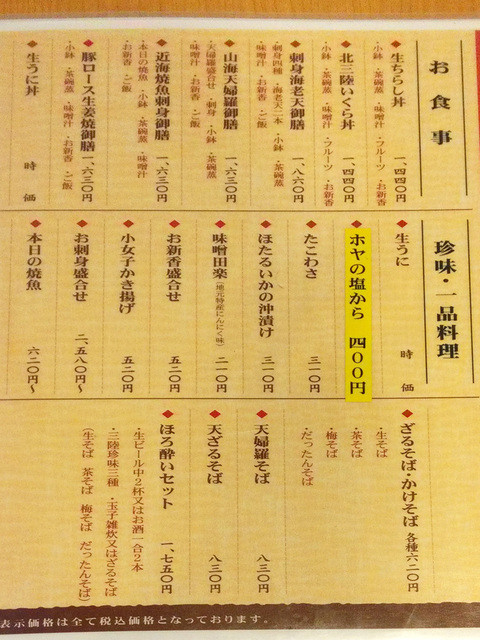 お食事
生ちらし丼 一、四四〇円
・小鉢 ・茶碗蒸 ・味噌汁 ・フルーツ ・お新香
北三陸いくら丼 一、四四〇円
・小鉢 ・茶碗蒸 ・味噌汁 ・フルーツ ・お新香
刺身海老天御膳 一、八六〇円
・刺身四種 ・海老天二本 ・小鉢 ・茶碗蒸
・味噌汁 ・お新香 ・ご飯
山海天婦羅御膳 一、六三〇円
・天婦羅盛合せ ・刺身 ・小鉢 ・茶碗蒸
・味噌汁 ・お新香 ・ご飯
近海焼魚刺身御膳 一、六三〇円
・本日の焼魚 ・小鉢 ・茶碗蒸 ・味噌汁
・お新香 ・ご飯
豚ロース生姜焼御膳 一、六三〇円
・小鉢 ・茶碗蒸 ・味噌汁 ・お新香 ・ご飯
生うに丼 時価
珍味・一品料理
生うに 時価
ホヤの塩から 四〇〇円
たこわさ 三一〇円
ほたるいかの沖漬け 三一〇円
味噌田楽(地元特産にんにく味) 二一〇円
お新香盛合せ 五二〇円
小女子かき揚げ 五二〇円
お刺身盛合せ 二、五八〇円～
本日の焼魚 六二〇円～
ざるそば・かけそば 各種六二〇円
・生そば
・茶そば
・梅そば
・だったんそば
天婦羅そば 八三〇円
天ざるそば 八三〇円
ほろ酔いセット 一、七五〇円
・生ビール中2杯又はお酒一合2本
・三陸珍味三種 ・玉子雑炊又はざるそば
(生そば 茶そば 梅そば だったんそば)
表示価格は全て税込価格となっております。